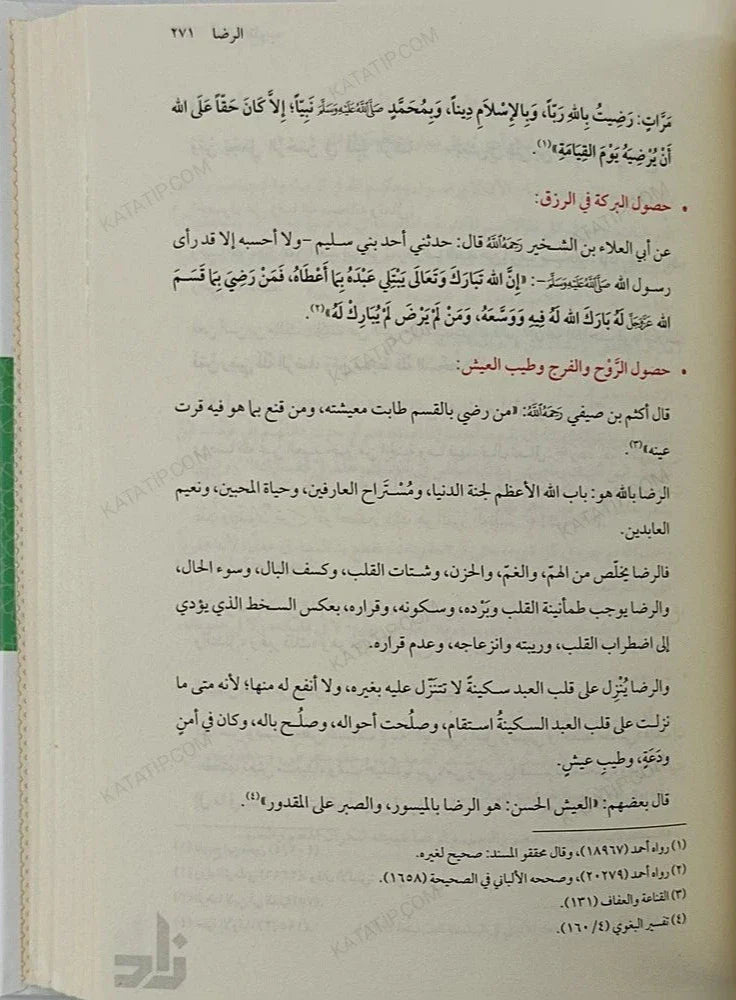 الرضا ٢٧١
مَرَّاتٍ: رَضِيتُ بِاللهِ رَبّاً، وَبِالإِسْلَامِ دِيناً، وَبِمُحَمَّدٍ صَلَّى اللهُ عَلَيْهِ وَسَلَّمَ نَبِيّاً؛ إِلاَّ كَانَ حَقّاً عَلَى الله
أَنْ يُرْضِيَهُ يَوْمَ القِيَامَةِ»(١).
• حصول البركة في الرزق:
عن أبي العلاء بن الشخير رَحِمَهُ اللهُ قال: حدثني أحد بني سليم –ولا أحسبه إلا قد رأى
رسول الله صَلَّى اللهُ عَلَيْهِ وَسَلَّمَ–: «إِنَّ الله تَبَارَكَ وَتَعَالَى يَبْتَلِي عَبْدَهُ بِمَا أَعْطَاهُ، فَمَنْ رَضِيَ بِمَا قَسَمَ
الله عَزَّوَجَلَّ لَهُ بَارَكَ الله لَهُ فِيهِ وَوَسَّعَهُ، وَمَنْ لَمْ يَرْضَ لَمْ يُبَارِكْ لَهُ»(٢).
• حصول الرَّوْح والفرج وطيب العيش:
قال أكثم بن صيفي رَحِمَهُ اللهُ: «من رضي بالقسم طابت معيشته، ومن قنع بما هو فيه قرت
عينه»(٣).
الرضا بالله هو: باب الله الأعظم لجنة الدنيا، ومُسْتَراح العارفين، وحياة المحبين، ونعيم
العابدين.
فالرضا يخلّص من الهمّ، والغمّ، والحزن، وشتات القلب، وكسف البال، وسوء الحال،
والرضا يوجب طمأنينة القلب وبَرْده، وسكونه، وقراره، بعكس السخط الذي يؤدي
إلى اضطراب القلب، وريبته وانزعاجه، وعدم قراره.
والرضا يُنْزِل على قلب العبد سكينةً لا تتنَزّل عليه بغيره، ولا أنفع له منها؛ لأنه متى ما
نزلت على قلب العبد السكينةُ استقام، وصلُحت أحواله، وصلُح باله، وكان في أمنٍ
ودَعَةٍ، وطيبِ عيشٍ.
قال بعضهم: «العيش الحسن: هو الرضا بالميسور، والصبر على المقدور»(٤).
(١) رواه أحمد (١٨٩٦٧)، وقال محققو المسند: صحيح لغيره.
(٢) رواه أحمد (٢٠٢٧٩)، وصححه الألباني في الصحيحة (١٦٥٨).
(٣) القناعة والعفاف (١٣١).
(٤) تفسير البغوي (٤/ ١٦٠).
زاد
KATATIP.COM
KATATIP.COM
KATATIP.COM
KATATIP.COM
KATATIP.COM
KATATIP.COM
KATATIP.COM
KATATIP.COM
KATATIP.COM
KATATIP.COM